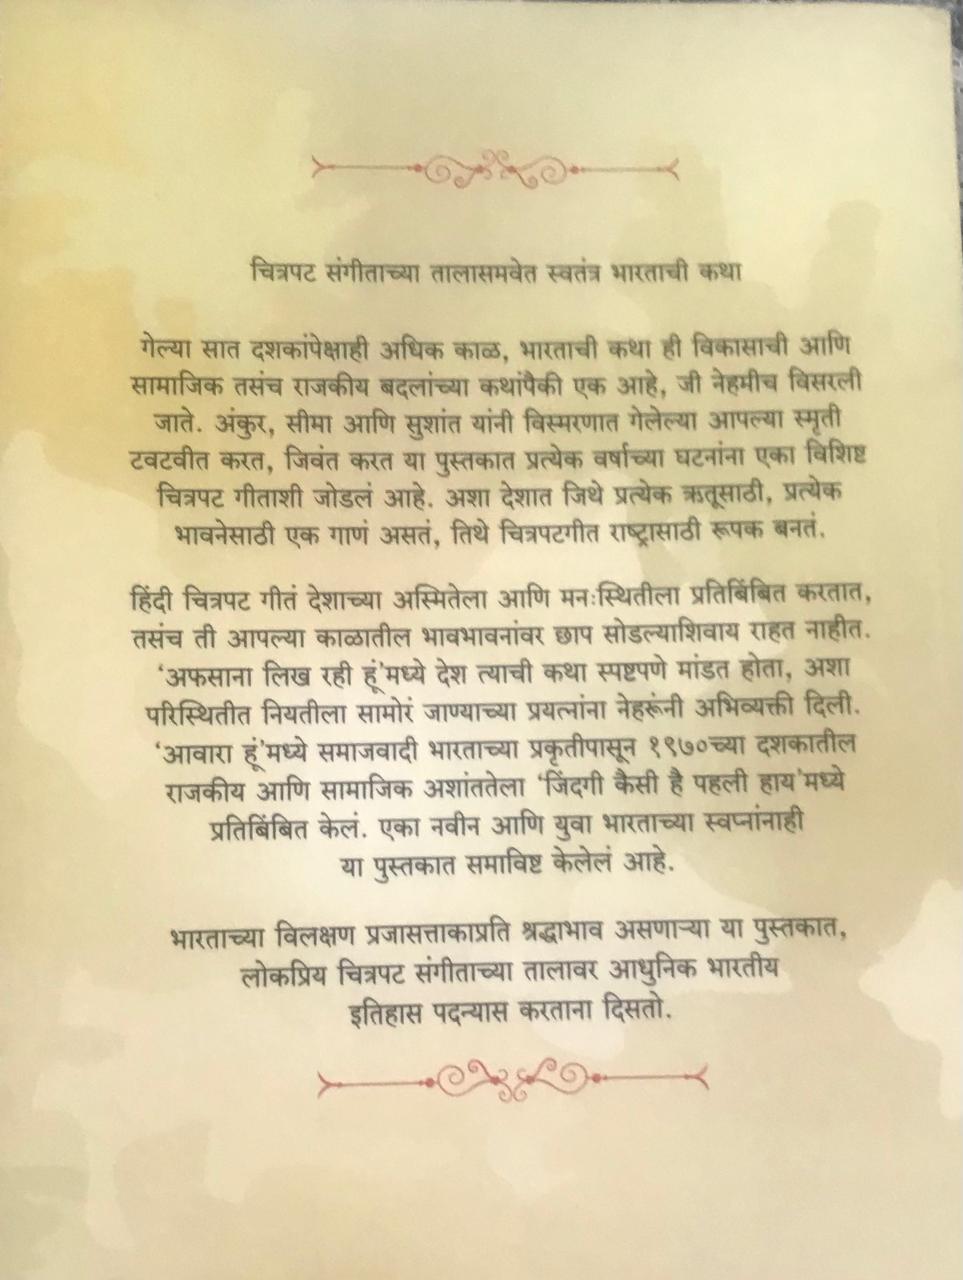 चित्रपट संगीताच्या तालासमवेत स्वतंत्र भारताची कथा
गेल्या सात दशकांपेक्षाही अधिक काळ, भारताची कथा ही विकासाची आणि
सामाजिक तसंच राजकीय बदलांच्या कथांपैकी एक आहे, जी नेहमीच विसरली
जाते. अंकुर, सीमा आणि सुशांत यांनी विस्मरणात गेलेल्या आपल्या स्मृती
टवटवीत करत, जिवंत करत या पुस्तकात प्रत्येक वर्षाच्या घटनांना एका विशिष्ट
चित्रपट गीताशी जोडलं आहे. अशा देशात जिथे प्रत्येक ऋतूसाठी, प्रत्येक
भावनेसाठी एक गाणं असतं, तिथे चित्रपटगीत राष्ट्रासाठी रूपक बनतं.
हिंदी चित्रपट गीतं देशाच्या अस्मितेला आणि मनःस्थितीला प्रतिबिंबित करतात,
तसंच ती आपल्या काळातील भावभावनांवर छाप सोडल्याशिवाय राहत नाहीत.
'अफसाना लिख रही हूं'मध्ये देश त्याची कथा स्पष्टपणे मांडत होता, अशा
परिस्थितीत नियतीला सामोरं जाण्याच्या प्रयत्नांना नेहरूंनी अभिव्यक्ती दिली.
'आवारा हूं'मध्ये समाजवादी भारताच्या प्रकृतीपासून १९७०च्या दशकातील
राजकीय आणि सामाजिक अशांततेला 'जिंदगी कैसी है पहली हाय'मध्ये
प्रतिबिंबित केलं. एका नवीन आणि युवा भारताच्या स्वप्नांनाही
या पुस्तकात समाविष्ट केलेलं आहे.
भारताच्या विलक्षण प्रजासत्ताकाप्रति श्रद्धाभाव असणाऱ्या या पुस्तकात,
लोकप्रिय चित्रपट संगीताच्या तालावर आधुनिक भारतीय
इतिहास पदन्यास करताना दिसतो.